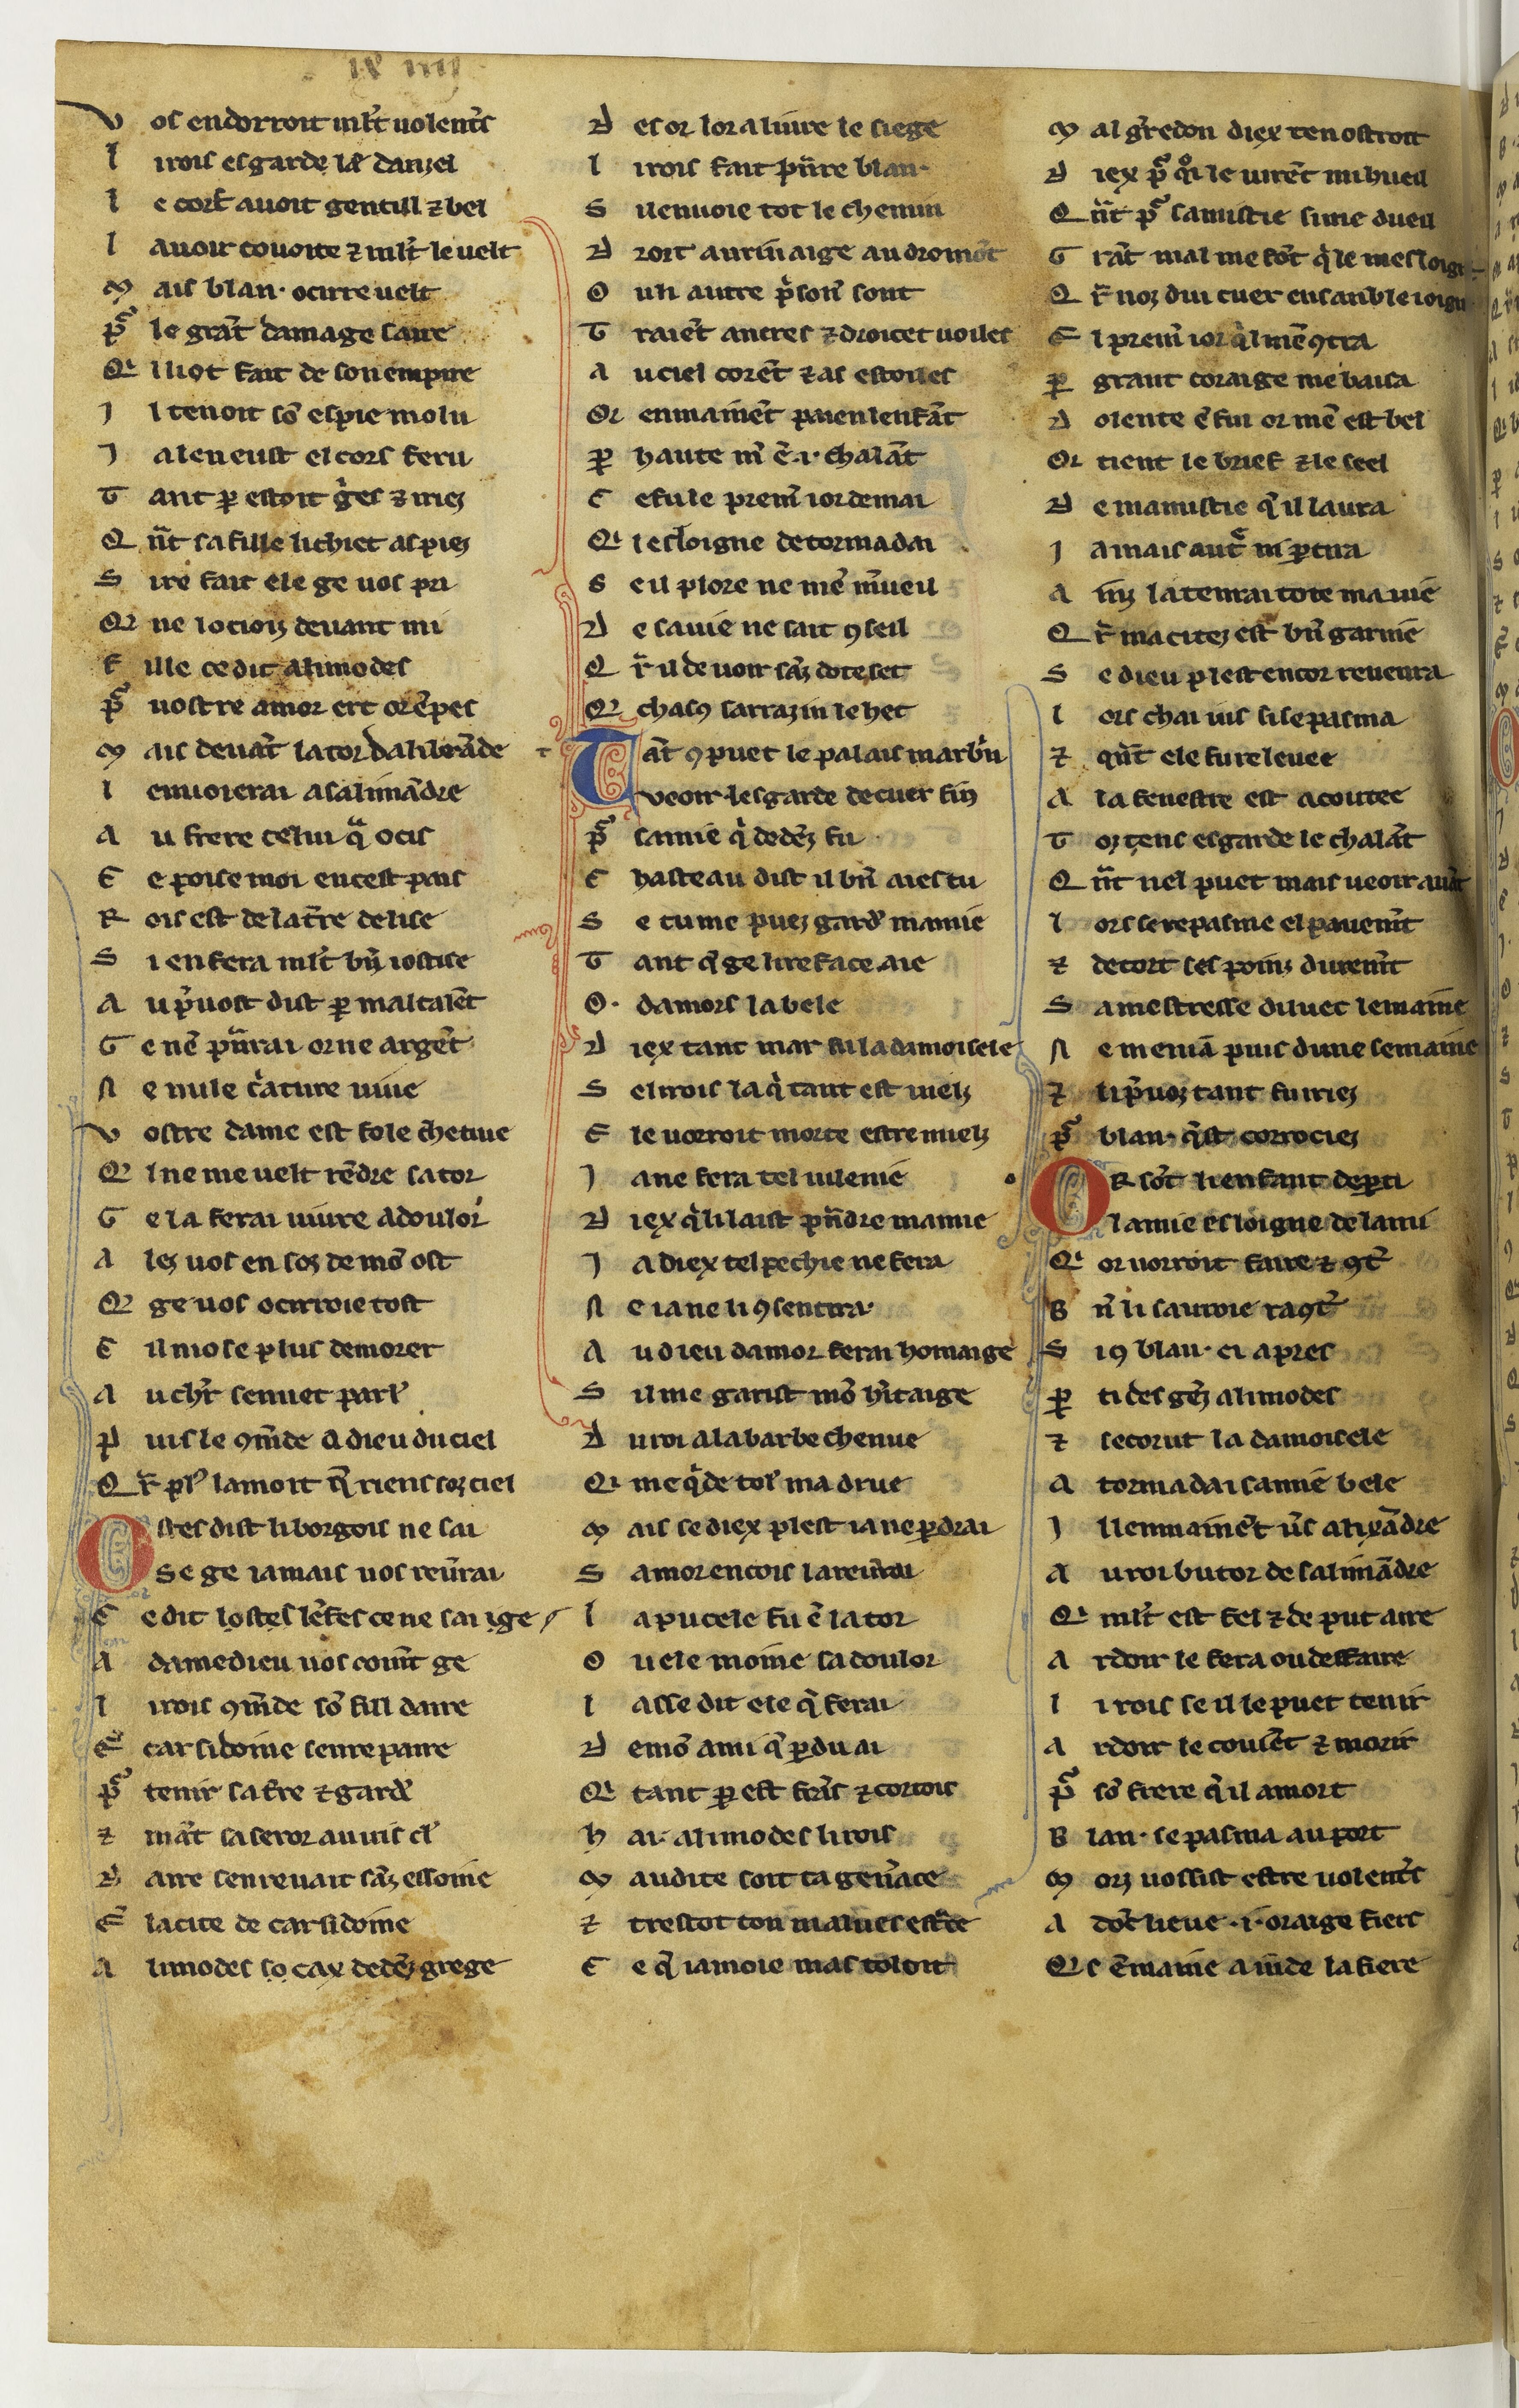 lx iiij
V os endorroit ml̃t uolent̃s
L i rois esgarde le danzel
L e cors avoit gentill ⁊ bel
L avoir couoite ⁊ ml̃t le uelt
M ais blan· ocirre uelt
P̃ le grãt damage faire
Q̾ lliot fait de son empire
I l tenoit sõ espie molu
I a len eust el cors feru
T ant ꝑ estoit g̾es ⁊ iriez
Q ñt sa fille li chiet as piez
S ire fait ele ge uos pri
Q̾ ne lociõz deuant mi
F ille ce dit alimodes
P̃ uostre amor ert or ẽpes
M ais deuãt la tor dalibrãde
L enuoierai a salimãdre
A u frere celui q̾ ocis
C e poise moi en cest pais
R ois est de la t̃re de lise
S i en fera ml̃t bñ iostise
A u p̾uost dist ꝑ maltalẽt
G e nẽ pñrai or ne argẽt
N e nule c̾ature uiue
V ostre dame est fole chetiue
Q̾ l ne me uelt rẽdre sa tor
G e la ferai uiure a doulor
A lez uos en foz de mõ ost
Q̾ ge uos ocirroie tost
C il nose plus demorer
A u cħr senuet parl̾
P uis le ꝯmãde a dieu du ciel
Q r̃ pl̾ lamoit q̃ riens soz ciel
O stes dist li borgois ne sai
Se ge iamais uos reũrai
C e dit lostes lẽfes ce ne sai ige
A damedieu uos comñt ge
L i rois ꝯmñde sõ fill daire
E̾ carsidoine sen repaire
P̃ tenir sa t̃re ⁊ gard̾
⁊ mãt sa seror au uis cl̾
D aire sen reuait sãz essoine
E̾ la cite de carsidoine
A limodes so cax dedẽz grege
D es or lor a liure le siege
L i rois fait pñre blan·
S il enuoie tot le chemin
D roit au riuaige au dromõt
O u li autre p̾son̾ sont
T raiẽt ancres ⁊ droicet uoiles
A u ciel corẽt ⁊ as estoiles
Or enmainẽt paien lenfãt
P̱ haute m̾ ẽ ·i· chalãt
C e fu le premi̾ ior de mai
Q̾ l esloigne de tormadai
S e il plore ne mẽ m̾ueil
D e sa uie ne sait ꝯseil
Q r̃ il de uoir sãz dote set
Q̾ chasꝯ sarrazin le het
T ãt ꝯ puet le palais marbri̾
Veoir lesgarde de cuer fin
P̃ samie q̾ dedẽz fu
C hasteau dist il bñ aies tu
S e tu me puez gard̾ mamie
T ant q̃ ge li reface aie
O· damors la bele
D iex tant mar fu la damoisele
S el irois la q̾ tant est uielz
E le uorroit morte estre mielz
I a ne fera tel uilenie
D iex q̾ li laist pñdre mamie
I a diex tel pechie ne fera
N e ia ne li ꝯsentira
A u dieu damor ferai homaige
S il me garist mõ h̾itaige
D u roi a la barbe chenue
Q̾ me q̾de tol̾ ma drue
M ais se diex plest ia ne ꝑdrai
S amor encois la reũrai
L a pucele fu ẽ la tor
O u ele moine sa doulor
L asse dit ele q̃ ferai
D e mõ ami q̃ ꝑdu ai
Q̾ tant ꝑ est frãs ⁊ cortois
H ai· alimodes li rois
M audite soit ta geñace
⁊ trestot ton maluesestãce
C e q̃ iamoie mas tolout
M al g̾redon diex ten ostroit
D iex p̃ q̾i le uirẽt mi hueil
Q ñt p̃ samistie sime dueil
G rãt mal me fõt q̾le mesloig
Q r̃ noz dui cuer ensanble ioign
E l premi̾ ior q̾l mẽꝯtra
P̱ grant coraige me baisa
D olente ẽ fui or mẽ est bel
Or tient le brief ⁊ le seel
D e mamistie q̾ il laura
I amais autr̃ ni ꝑtira
A nz la tenrai tote ma uie
Q r̃ ma citez est bñ garnie
S e dieu plest encor reuenra
L ors chai ius si se pasma
⁊ qñt ele fu releuee
A la fenestre est acoutee
T oz tens esgarde le chalãt
Q ñt nel puet mais ueoir auãt
L ors se repasme el pauemñt
⁊ detort ses poinz duremñt
S a mestresse diluec lemaine
N e menia puis dune semaine
⁊ li p̾uoz tant fu iriez
P̃ blan· q̾st corrociez
O R sõt li enfant deꝑti
Lamie esloigne de lami
Q̾ or uorroit faire ⁊ ꝯt̾
B ñ li sauroie raꝯt̾
S i ꝯ blan· ci apres
P̱ ti des gẽz alimodes
⁊ secorut la damoisele
A tormadai samie bele
I l lenmainẽt ũs alixãdre
A u roi butor de salimãdre
Q̾ ml̃t est fel ⁊ de put aire
A rdoir le fera ou desfaire
L i rois se il le puet tenir
A rdoir le couiẽt ⁊ morir
P̃ sõ frere q̃ il a mort
B lan· se pasma au port
M orz uossist estre uolent̃s
A dõt lieue ·i· oraige fiers
Q̾ s ẽmaine a mñde la fiere